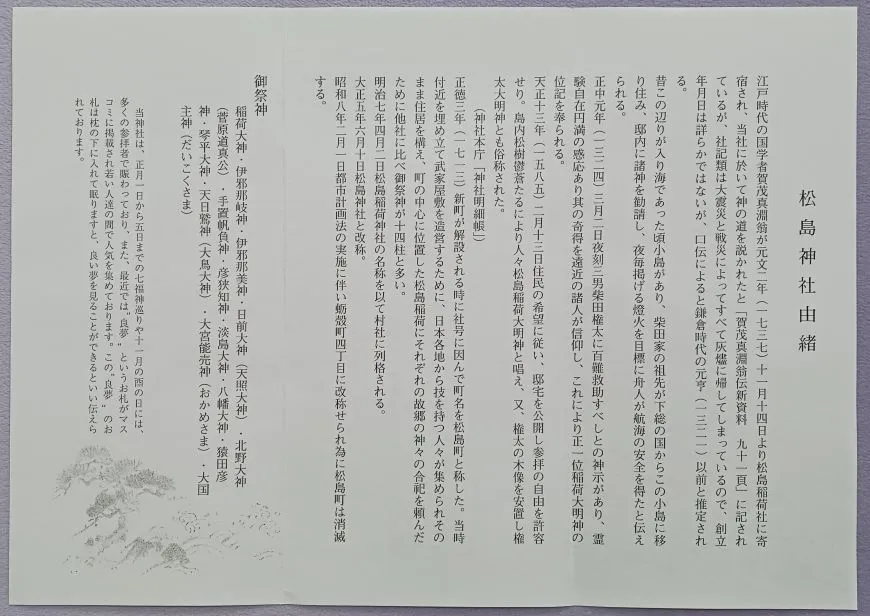 松島神社由緒
江戸時代の国学者賀茂真淵翁が元文二年（一七三七）十一月十四日より松島稲荷社に寄
宿され、当社に於いて神の道を説かれたと「賀茂真淵翁伝新資料　九十一頁」に記され
ているが、社記類は大震災と戦災によってすべて灰燼に帰してしまっているので、創立
年月日は詳らかではないが、口伝によると鎌倉時代の元亨（一三二一）以前と推定され
る。
昔この辺りが入り海であった頃小島があり、柴田家の祖先が下総の国からこの小島に移
り住み、邸内に諸神を勧請し、夜毎掲げる燈火を目標に舟人が航海の安全を得たと伝え
られる。
正中元年（一三二四）三月二日夜刻三男柴田権太に百難救助すべしとの神示があり、霊
験自在円満の感応あり其の奇得を遠近の諸人が信仰し、これにより正一位稲荷大明神の
位記を奉られる。
天正十三年（一五八五）二月十三日住民の希望に従い、邸宅を公開し参拝の自由を許容
せり。島内松樹鬱蒼たるにより人々松島稲荷大明神と唱え、又、権太の木像を安置し権
太大明神とも俗称された。
（神社本庁「神社明細帳」）
正徳三年（一七一三）新町が解設される時に社号に因んで町名を松島町と称した。当時
付近を埋め立て武家屋敷を造営するために、日本各地から技を持つ人々が集められその
まま住居を構え、町の中心に位置した松島稲荷にそれぞれの故郷の神々の合祀を頼んだ
ために他社に比べ御祭神が十四柱と多い。
明治七年四月二日松島稲荷神社の名称を以て村社に列格される。
大正五年六月十日松島神社と改称。
昭和八年二月一日都市計画法の実施に伴い蛎殻町四丁目に改称せられ為に松島町は消滅
する。
御祭神
稲荷大神・伊邪那岐神・伊邪那美神・日前大神（天照大神）・北野大神
（菅原道真公）・手置帆負神・彦狭知神・淡島大神・八幡大神・猿田彦
神・琴平大神・天日鷲神（大鳥大神）・大宮能売神（おかめさま）・大国
主神（だいこくさま）
当神社は、正月一日から五日までの七福神巡りや十一月の酉の日には、
多くの参拝者で賑わっており、また、最近では"良夢"というお札がマス
コミに掲載され若い人達の間で人気を集めております。この"良夢"のお
札は枕の下に入れて眠りますと、良い夢を見ることができるといい伝えら
れております。